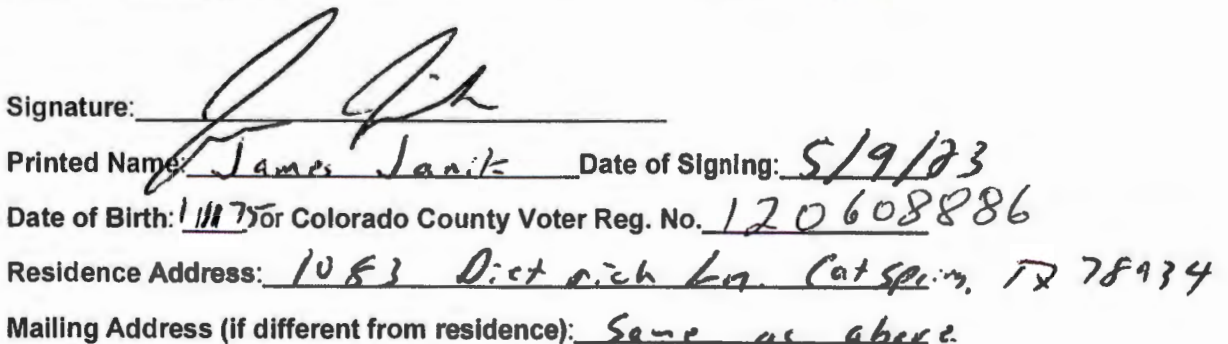 Signature:
Printed Name: James Janik Date of Signing: 5/9/23
Date of Birth: 75 or Colorado County Voter Reg. No. 120608886
Residence Address: 1083 Dietrich Ln. Cat Spring, TX 78934
Mailing Address (if different from residence): Same as above